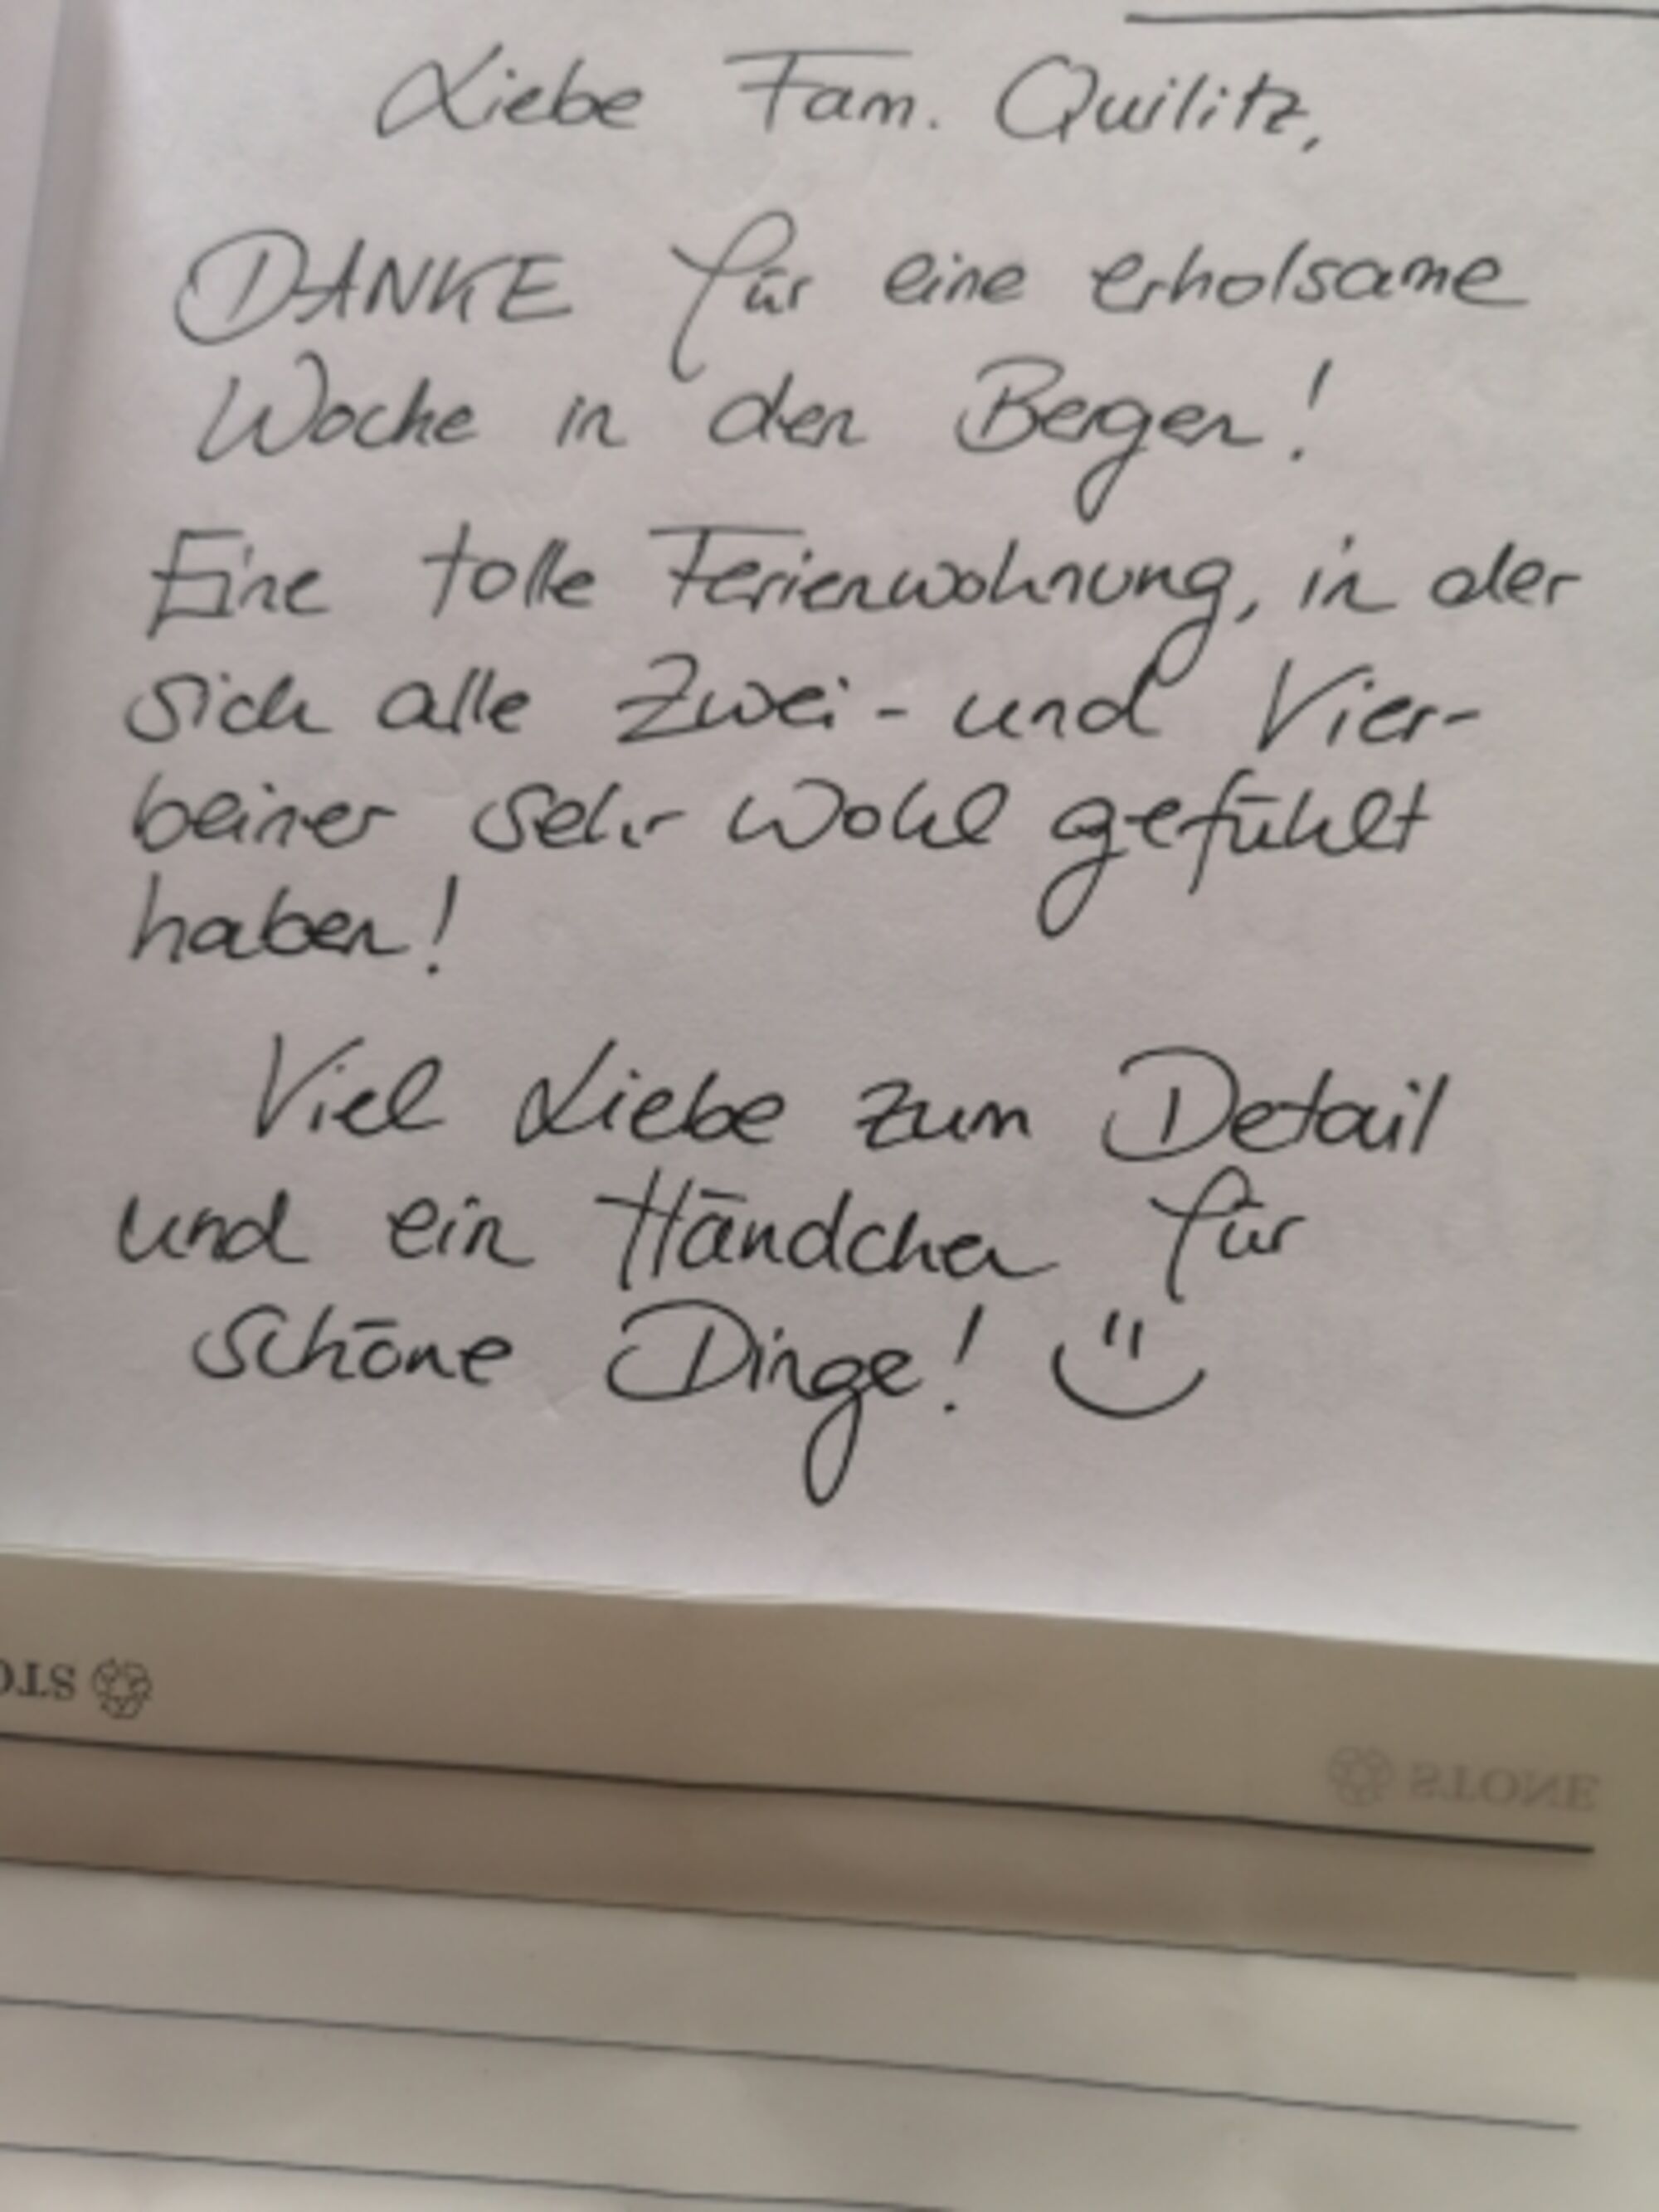 Liebe Fam. Quilitz,
DANKE für eine erholsame
Woche in den Bergen!
Eine tolle Ferienwohnung, in der
sich alle Zwei- und Vier-
beiner sehr wohl gefühlt
haben!
Viel Liebe zum Detail
und ein Händchen für
schöne Dinge! 
STO
STONE